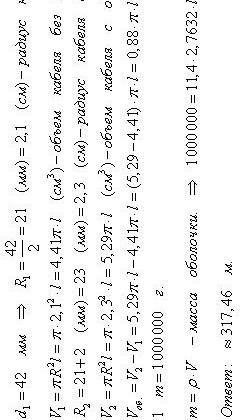 d₁ = 42 мм ⇒ R₁ = 42/2 = 21 (мм) = 2,1 (см) – радиус к
V₁ = πR²l = π·2,1²·l = 4,41π·l (см³) – объем кабеля без
R₂ = 21 + 2 (мм) = 23 (мм) = 2,3 (см) – радиус кабеля
V₂ = πR²l = π·2,3²·l = 5,29π·l (см³) – объем кабеля с о
Vоб. = V₂ – V₁ = 5,29π·l – 4,41π·l = (5,29 – 4,41)·π·l = 0,88·π·l
1 т = 1000000 г.
m = ρ·V – масса оболочки. ⇒ 1000000 = 11,4·2,7632·l
Ответ: ≈ 317,46 м.